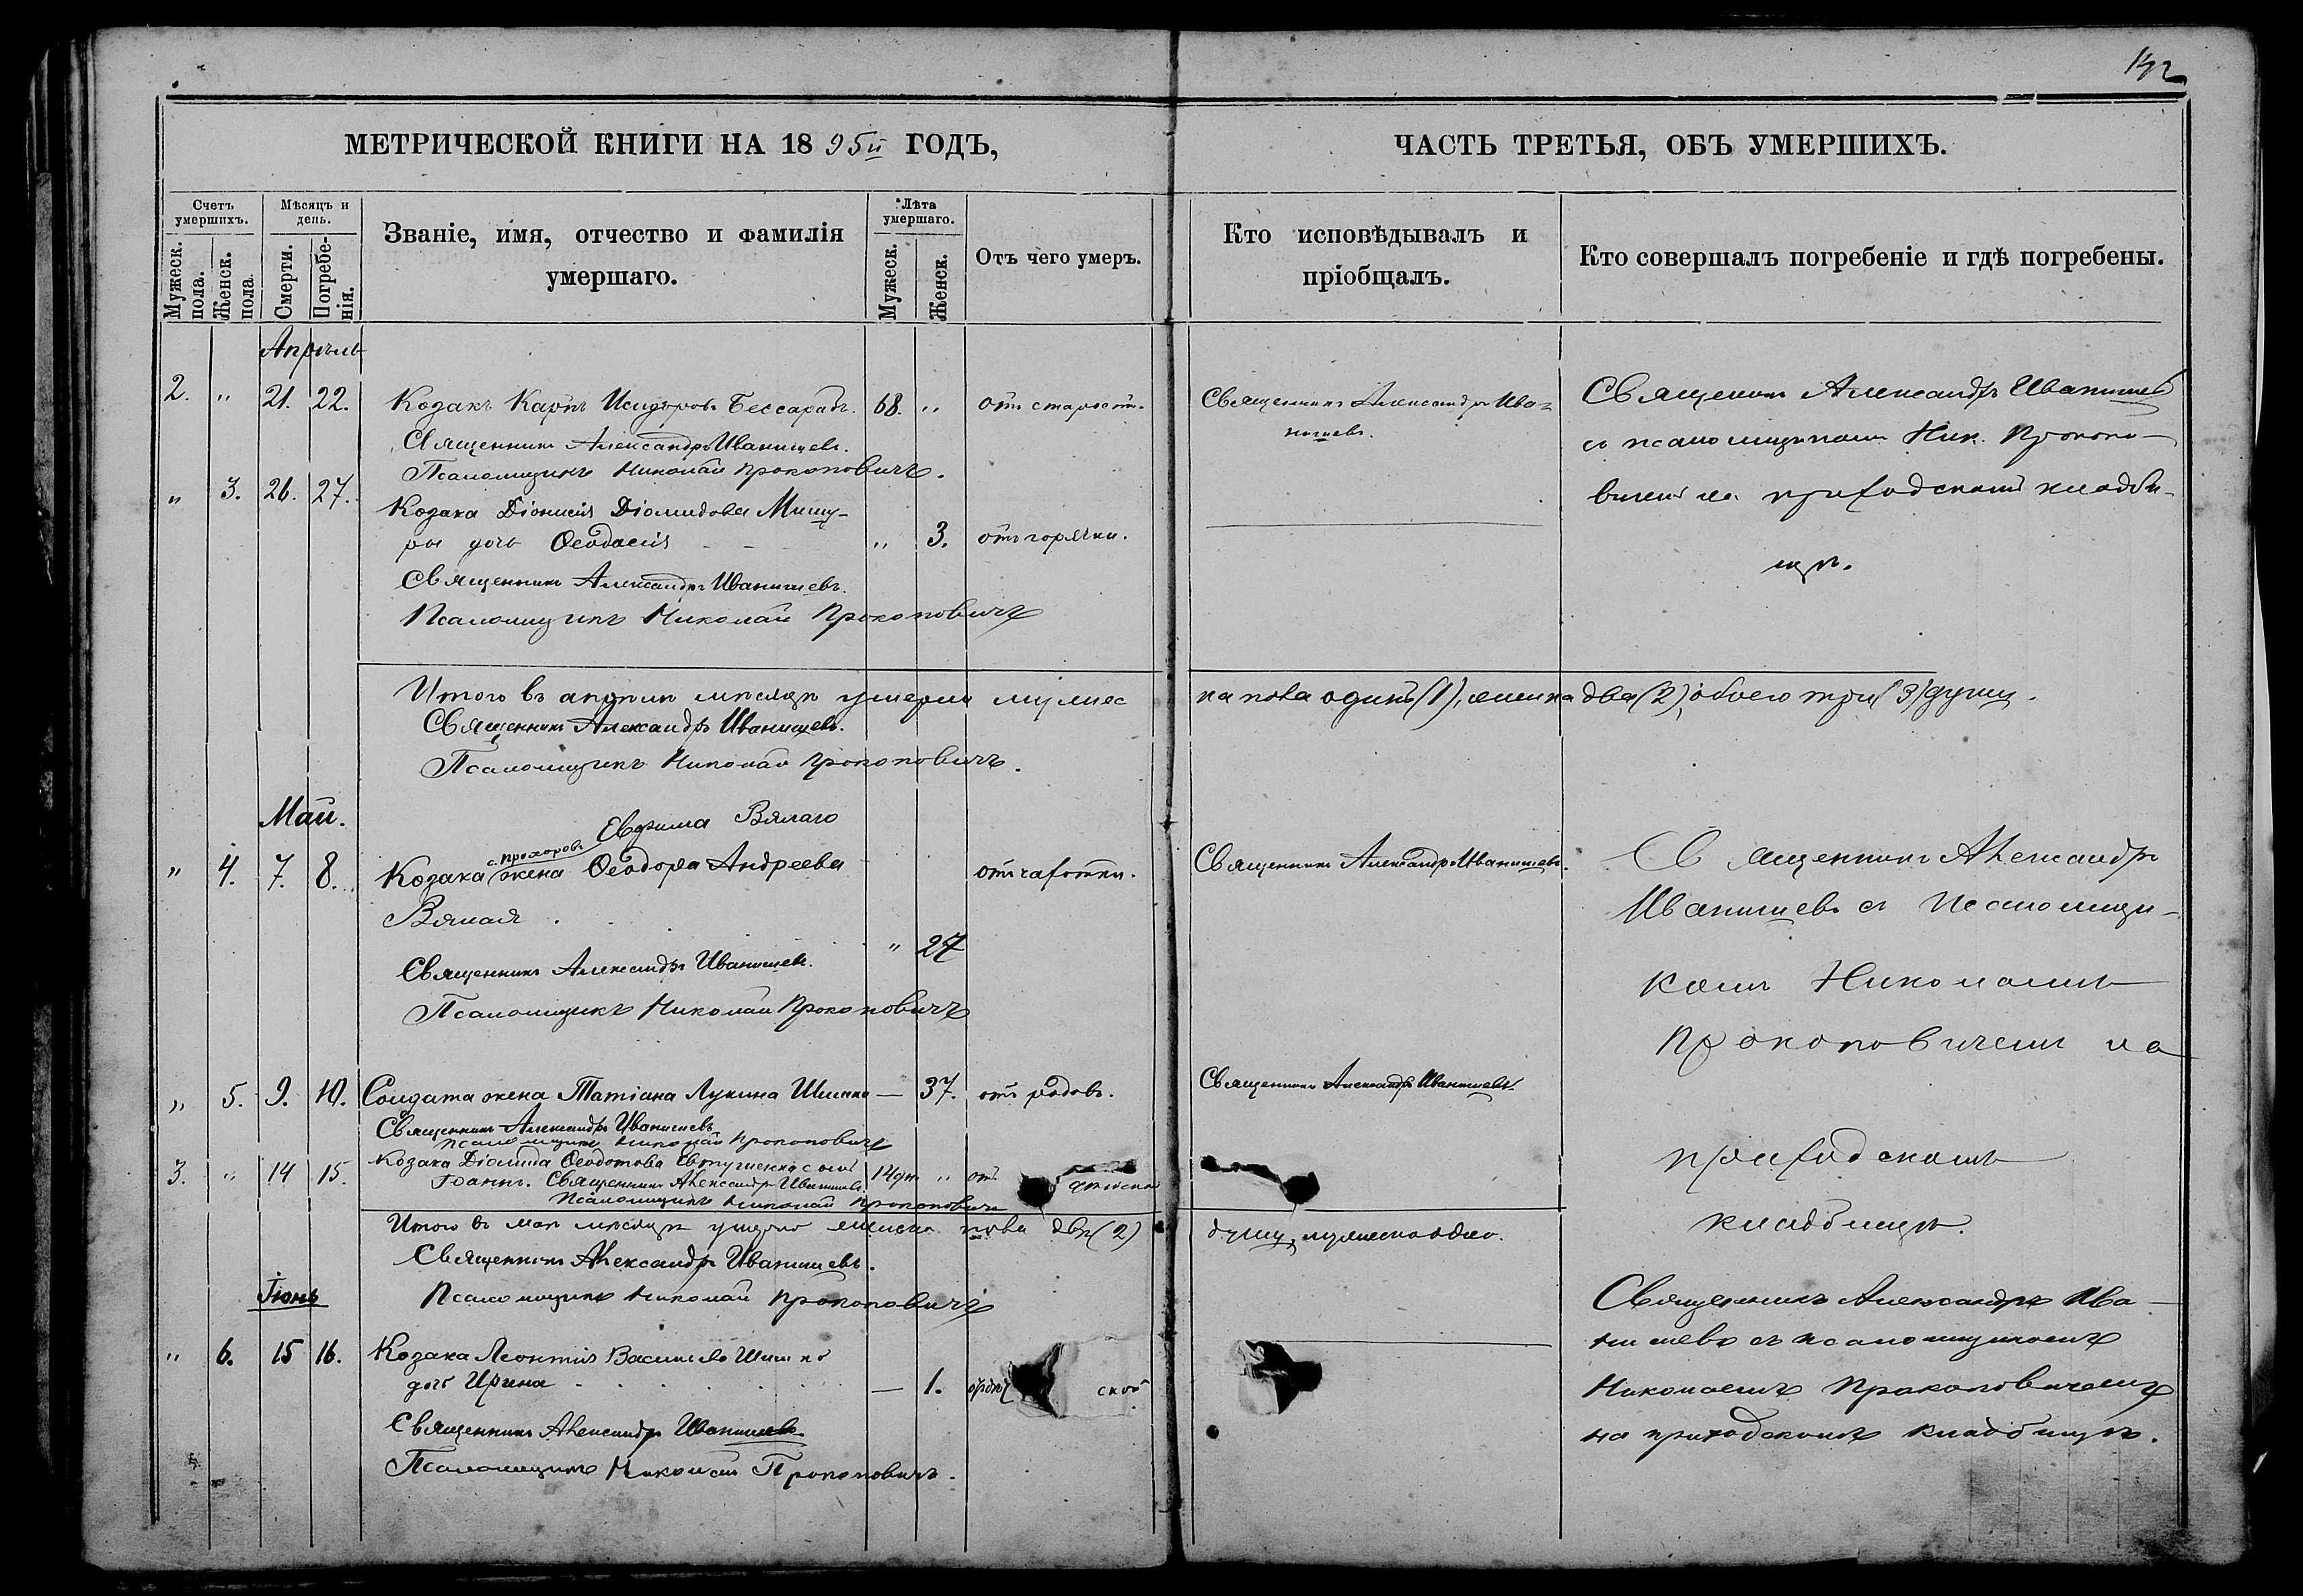 МЕТРИЧЕСКОЙ КНИГИ НА 1895й ГОДЪ,
Счетъ умершихъ.
Мѣсяцъ и день.
Званіе, имя, отчество и фамилія умершаго.
Лѣта умершаго.
Отъ чего умеръ.
Мужеск. пола.
Женск. пола
Смерти.
Погребенія.
Мужеск.
Женск.
Апрѣль
2. " 21. 22. Козакъ Карпъ Исидоровъ Бессарабъ. 68. " отъ старости.
Священникъ Александръ Иванишевъ.
Псаломщикъ Николай Прокоповичъ.
" 3. 26. 27. Козака Діонисія Діомидова Мишу-
ры дочь Ѳеодосія - - " 3. отъ горячки.
Священникъ Александръ Иванишевъ.
Псаломщикъ Николай Прокоповичъ
Итого въ апрѣлѣ мѣсяцѣ умерли мужес
Священникъ Александръ Иванишевъ.
Псаломщикъ Николай Прокоповичъ.
Май.
Евфима Вялаго
с. Прохоров
" 4. 7. 8. Козака жена Ѳеодора Андреева отъ чахотки.
Вялая . " 27
Священникъ Александръ Иванишевъ.
Псаломщикъ Николай Прокоповичъ
" 5. 9. 10. Солдата жена Татіана Лукина Шишко — 37. отъ родовъ.
Священникъ Александръ Иванишевъ
Псаломщикъ Николай Прокоповичъ
3. " 14 15. Козака Діомида Ѳеодотова сынъ " отъ
Іоаннъ. Священникъ Александръ Иванишевъ
Псаломщикъ Николай Прокоповичъ
Итого въ маѣ мѣсяцѣ умерло женска пола двѣ (2)
Священникъ Александръ Иванишевъ.
Псаломщикъ Николай Прокоповичъ
Іюнь
" 6. 15 16. Козака Леонтія Василева Шишко
дочь Ирина — 1. ской
Священникъ Александръ Иванишевъ
Псаломщикъ Николай Прокоповичъ.
ЧАСТЬ ТРЕТЬЯ, ОБЪ УМЕРШИХЪ.
Кто исповѣдывалъ и пріобщалъ.
Кто совершалъ погребеніе и гдѣ погребены.
Священникъ Александръ Ива-
нишевъ.
Священникъ Александръ Иванишевъ
съ псаломщикомъ Ник. Прокопо-
вичемъ на приходскомъ кладби-
щѣ.
ка пола одинъ (1), женска два (2), обоего три (3) душъ.
Священникъ Александръ Иванишевъ.
Священникъ Александръ
Иванишевъ съ псаломщи-
комъ Николаемъ
Прокоповичемъ на
приходскомъ
кладбищѣ.
Священникъ Александръ Иванишевъ.
душъ, мужеска одно.
Священникъ Александръ Ива-
нишевъ съ псаломщикомъ
Николаемъ Прокоповичемъ
на приходскомъ кладбищѣ.